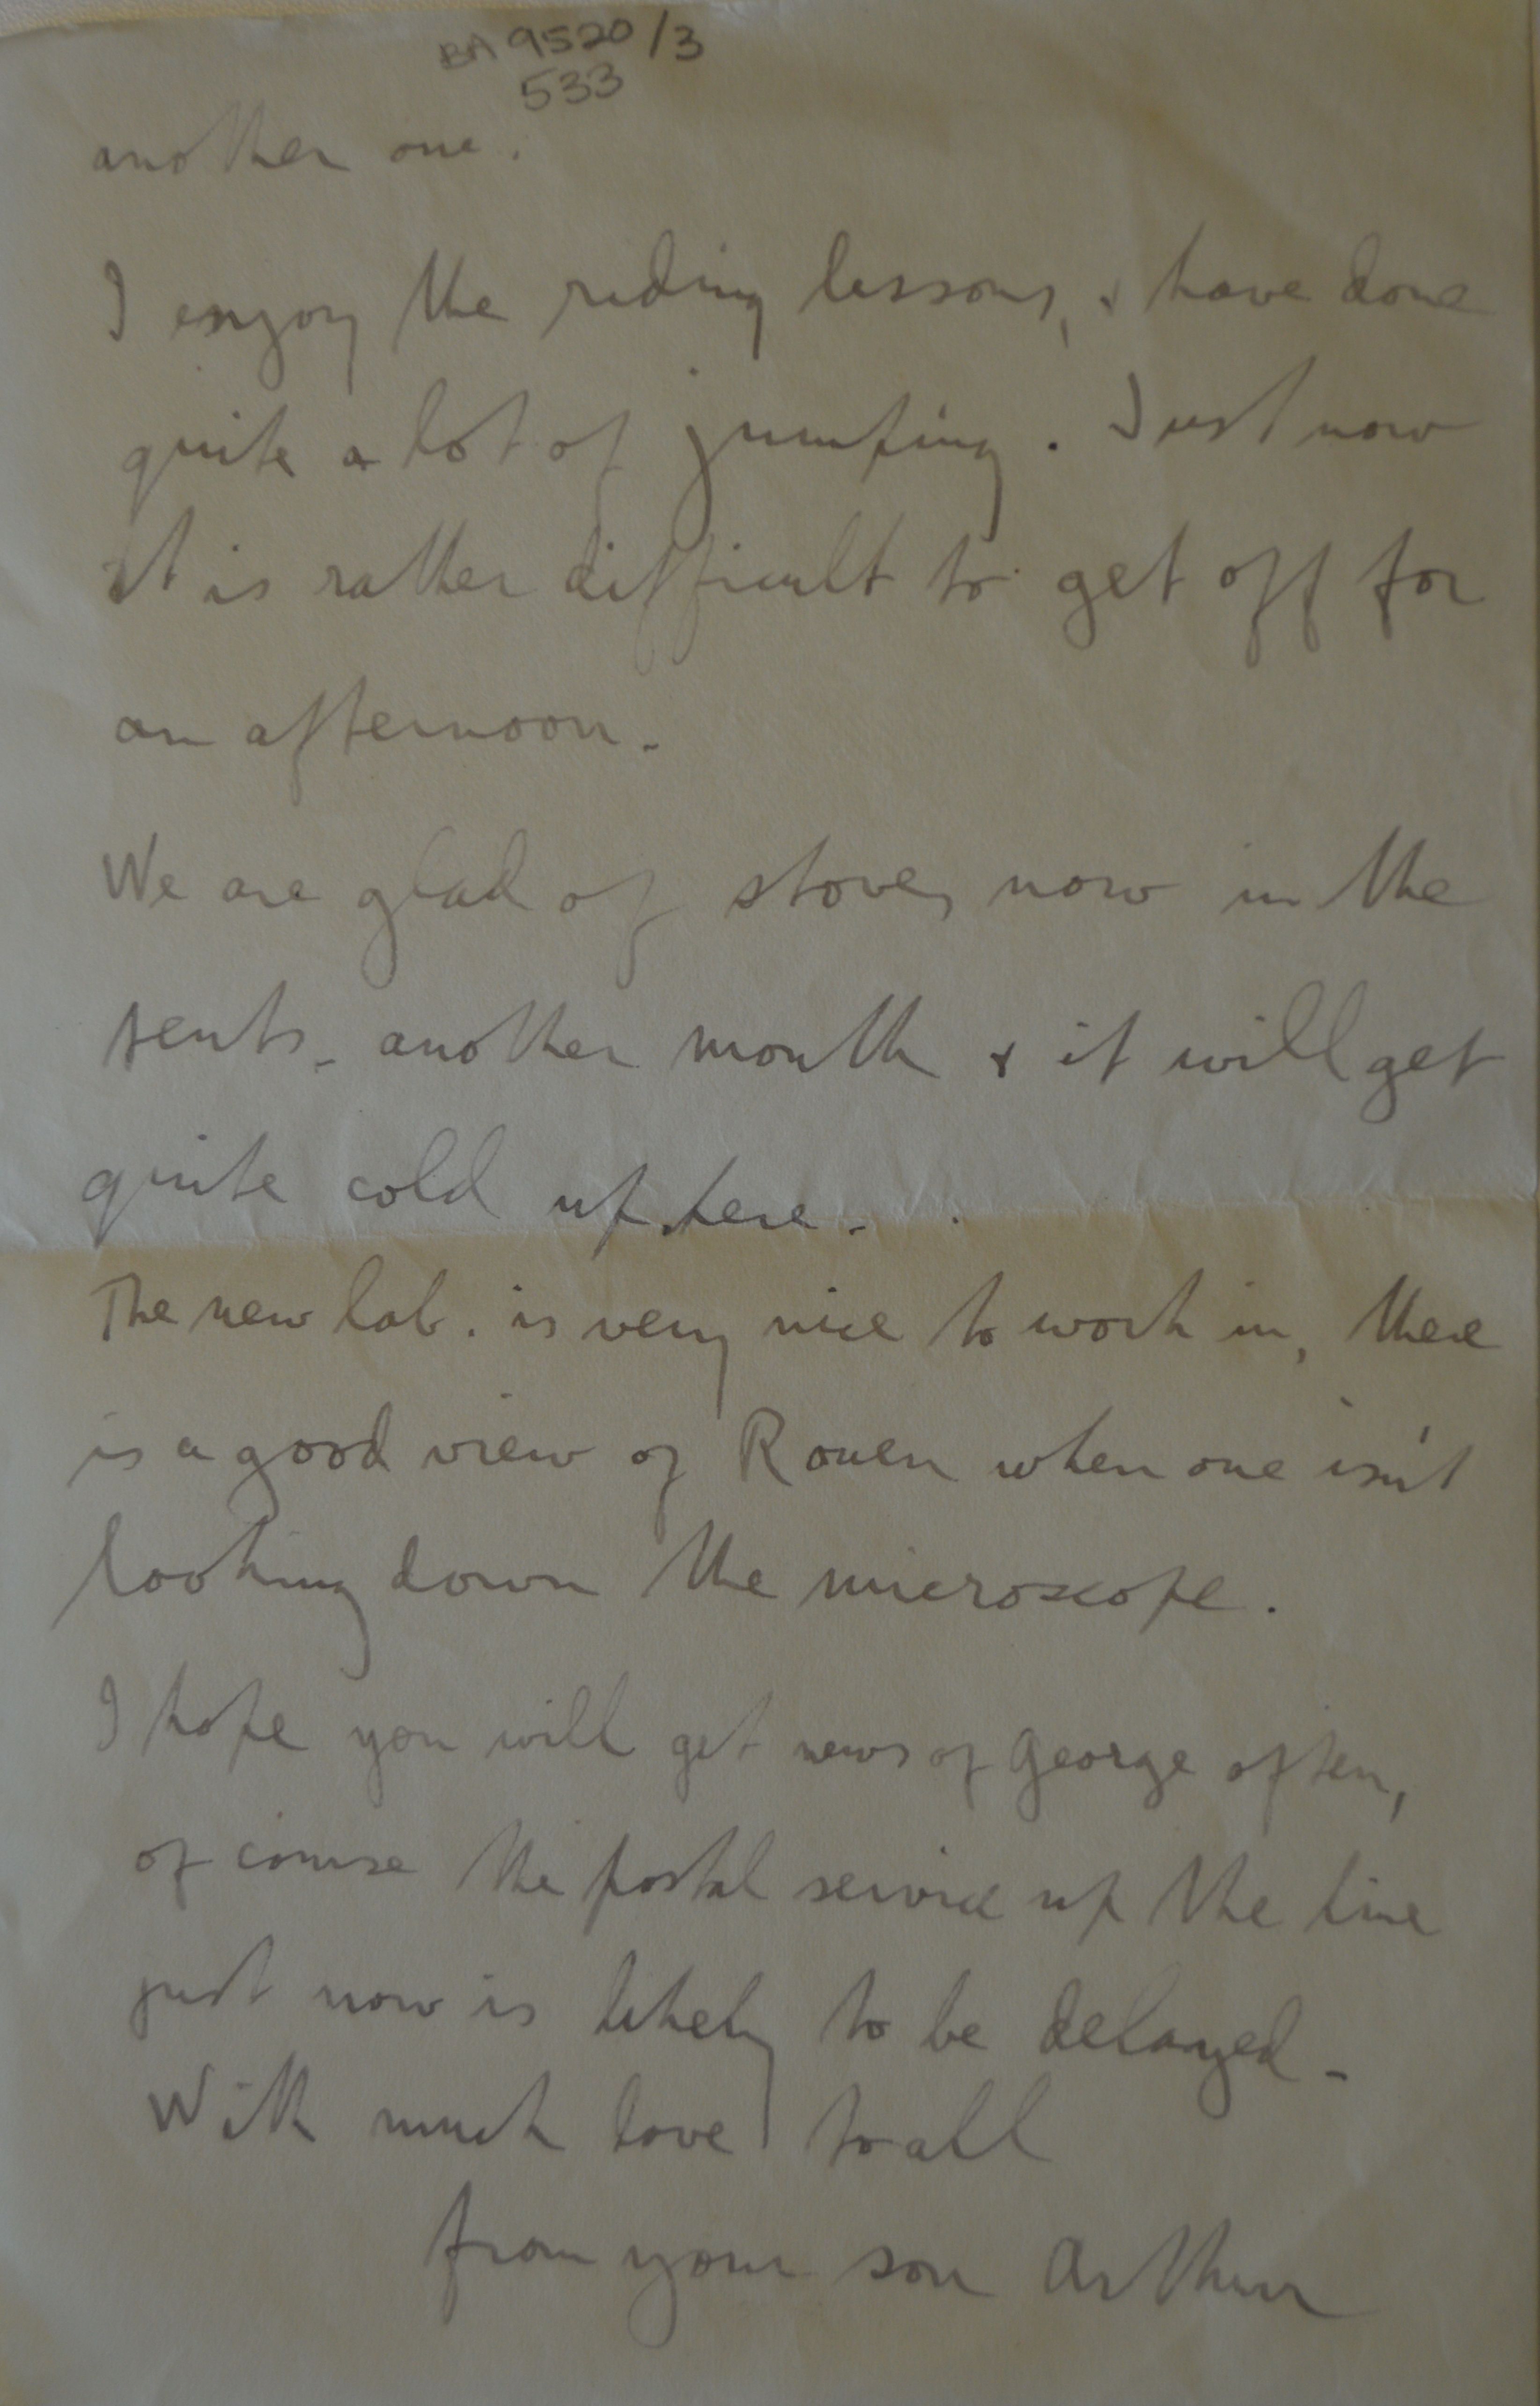 BA 9520/3
533
another one.
I enjoy the riding lessons, & have done
quite a lot of jumping. Just now
it is rather difficult to get off for
an afternoon.
We are glad of stoves now in the
tents - another month & it will get
quite cold up here.
The new lab. is very nice to work in, there
is a good view of Rouen when one isn't
looking down the microscope.
I hope you will get news of George often,
of course the postal service up the line
just now is likely to be delayed -
With much love to all
from your son Arthur